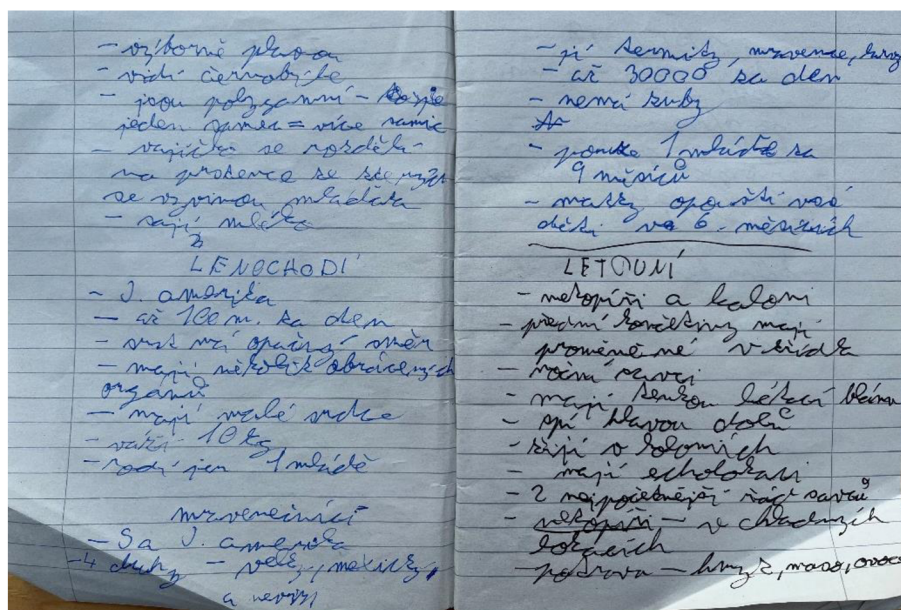 - výborně plavou
- vidí černobíle
- jsou polygamní -
jeden samec = více samic
- vajíčko se rozdělí
na prosence ze
se vyvinou mláďata
- sají mléko
LENOCHODI
- J. amerika
- až 100 m. za den
- srst má opačný směr
- mají několik obrácených
orgánů
- mají malé srdce
- váží 10 kg
- rodí jen 1 mládě
mravenečníci
- S a J. amerika
- 4 druhy - velký, mexický,
a
- jí termity, mravence, hmyz
- až 30000 za den
- nemá zuby
- pouze 1 mládě za
9 měsíců
- matky opouští své
děti v 6. měsících
LETOUNI
- netopíři a kaloni
- přední končetiny mají
proměněné v křídla
- noční savci
- mají tenkou létací blánu
- spí hlavou dolů
- žijí v koloniích
- mají echolokaci
- 2 nejpočetnější řád savců
- netopíři - v chladných
lokacích
- potrava - hmyz, maso, ovoce